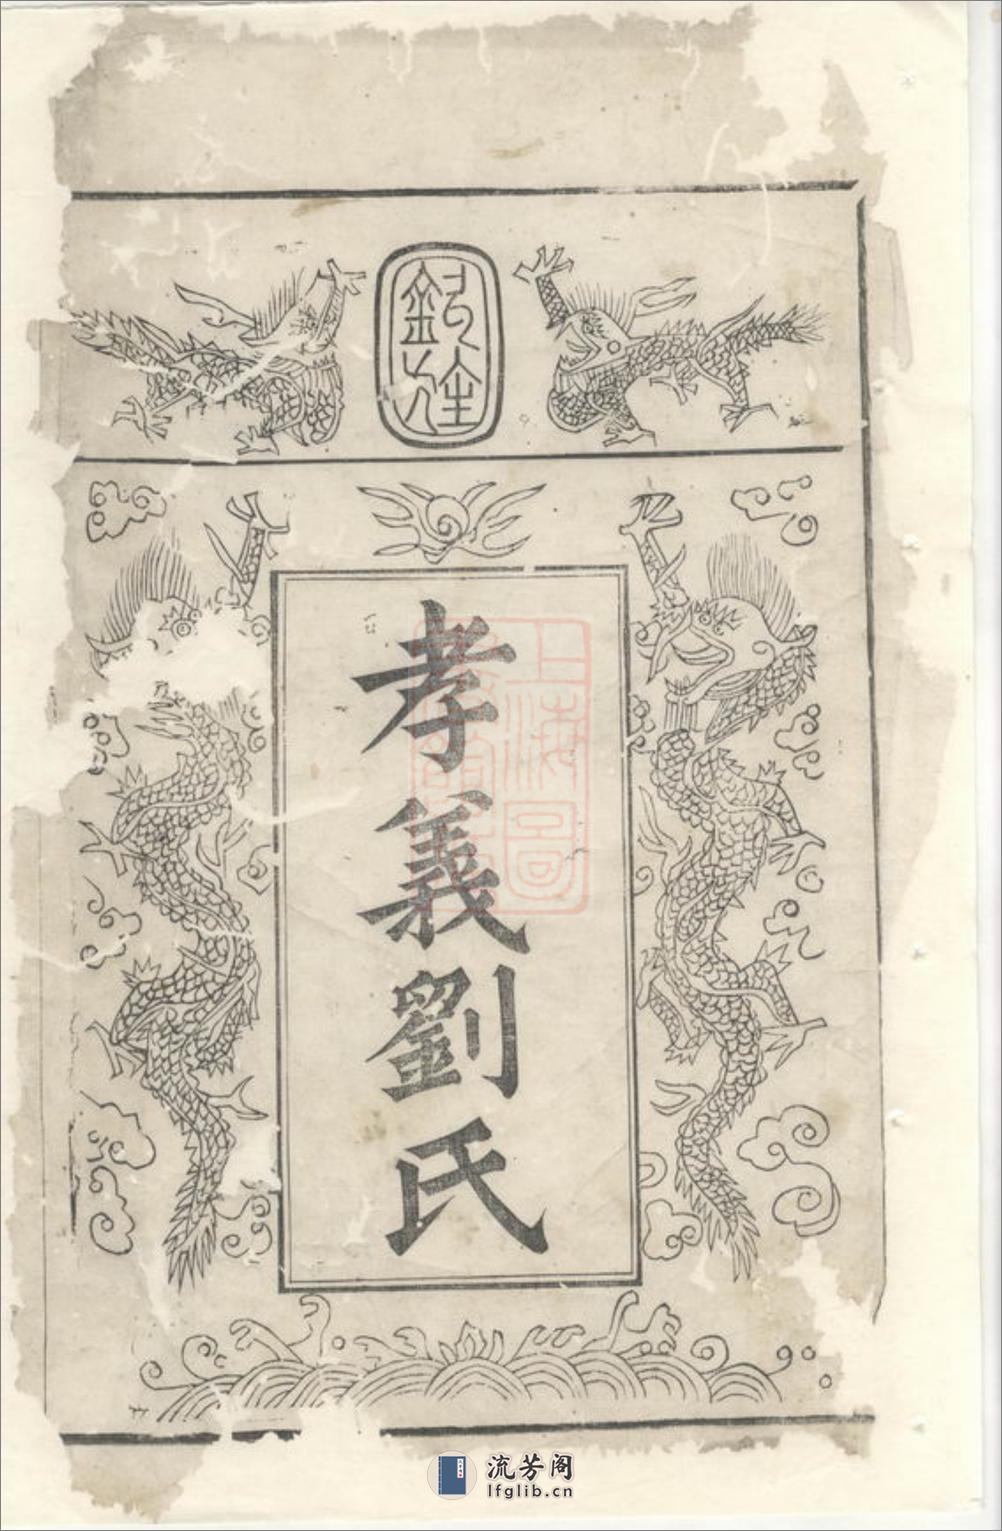 欽旌
孝義劉氏
上海圖
書館藏
流芳阁
lfglib.cn